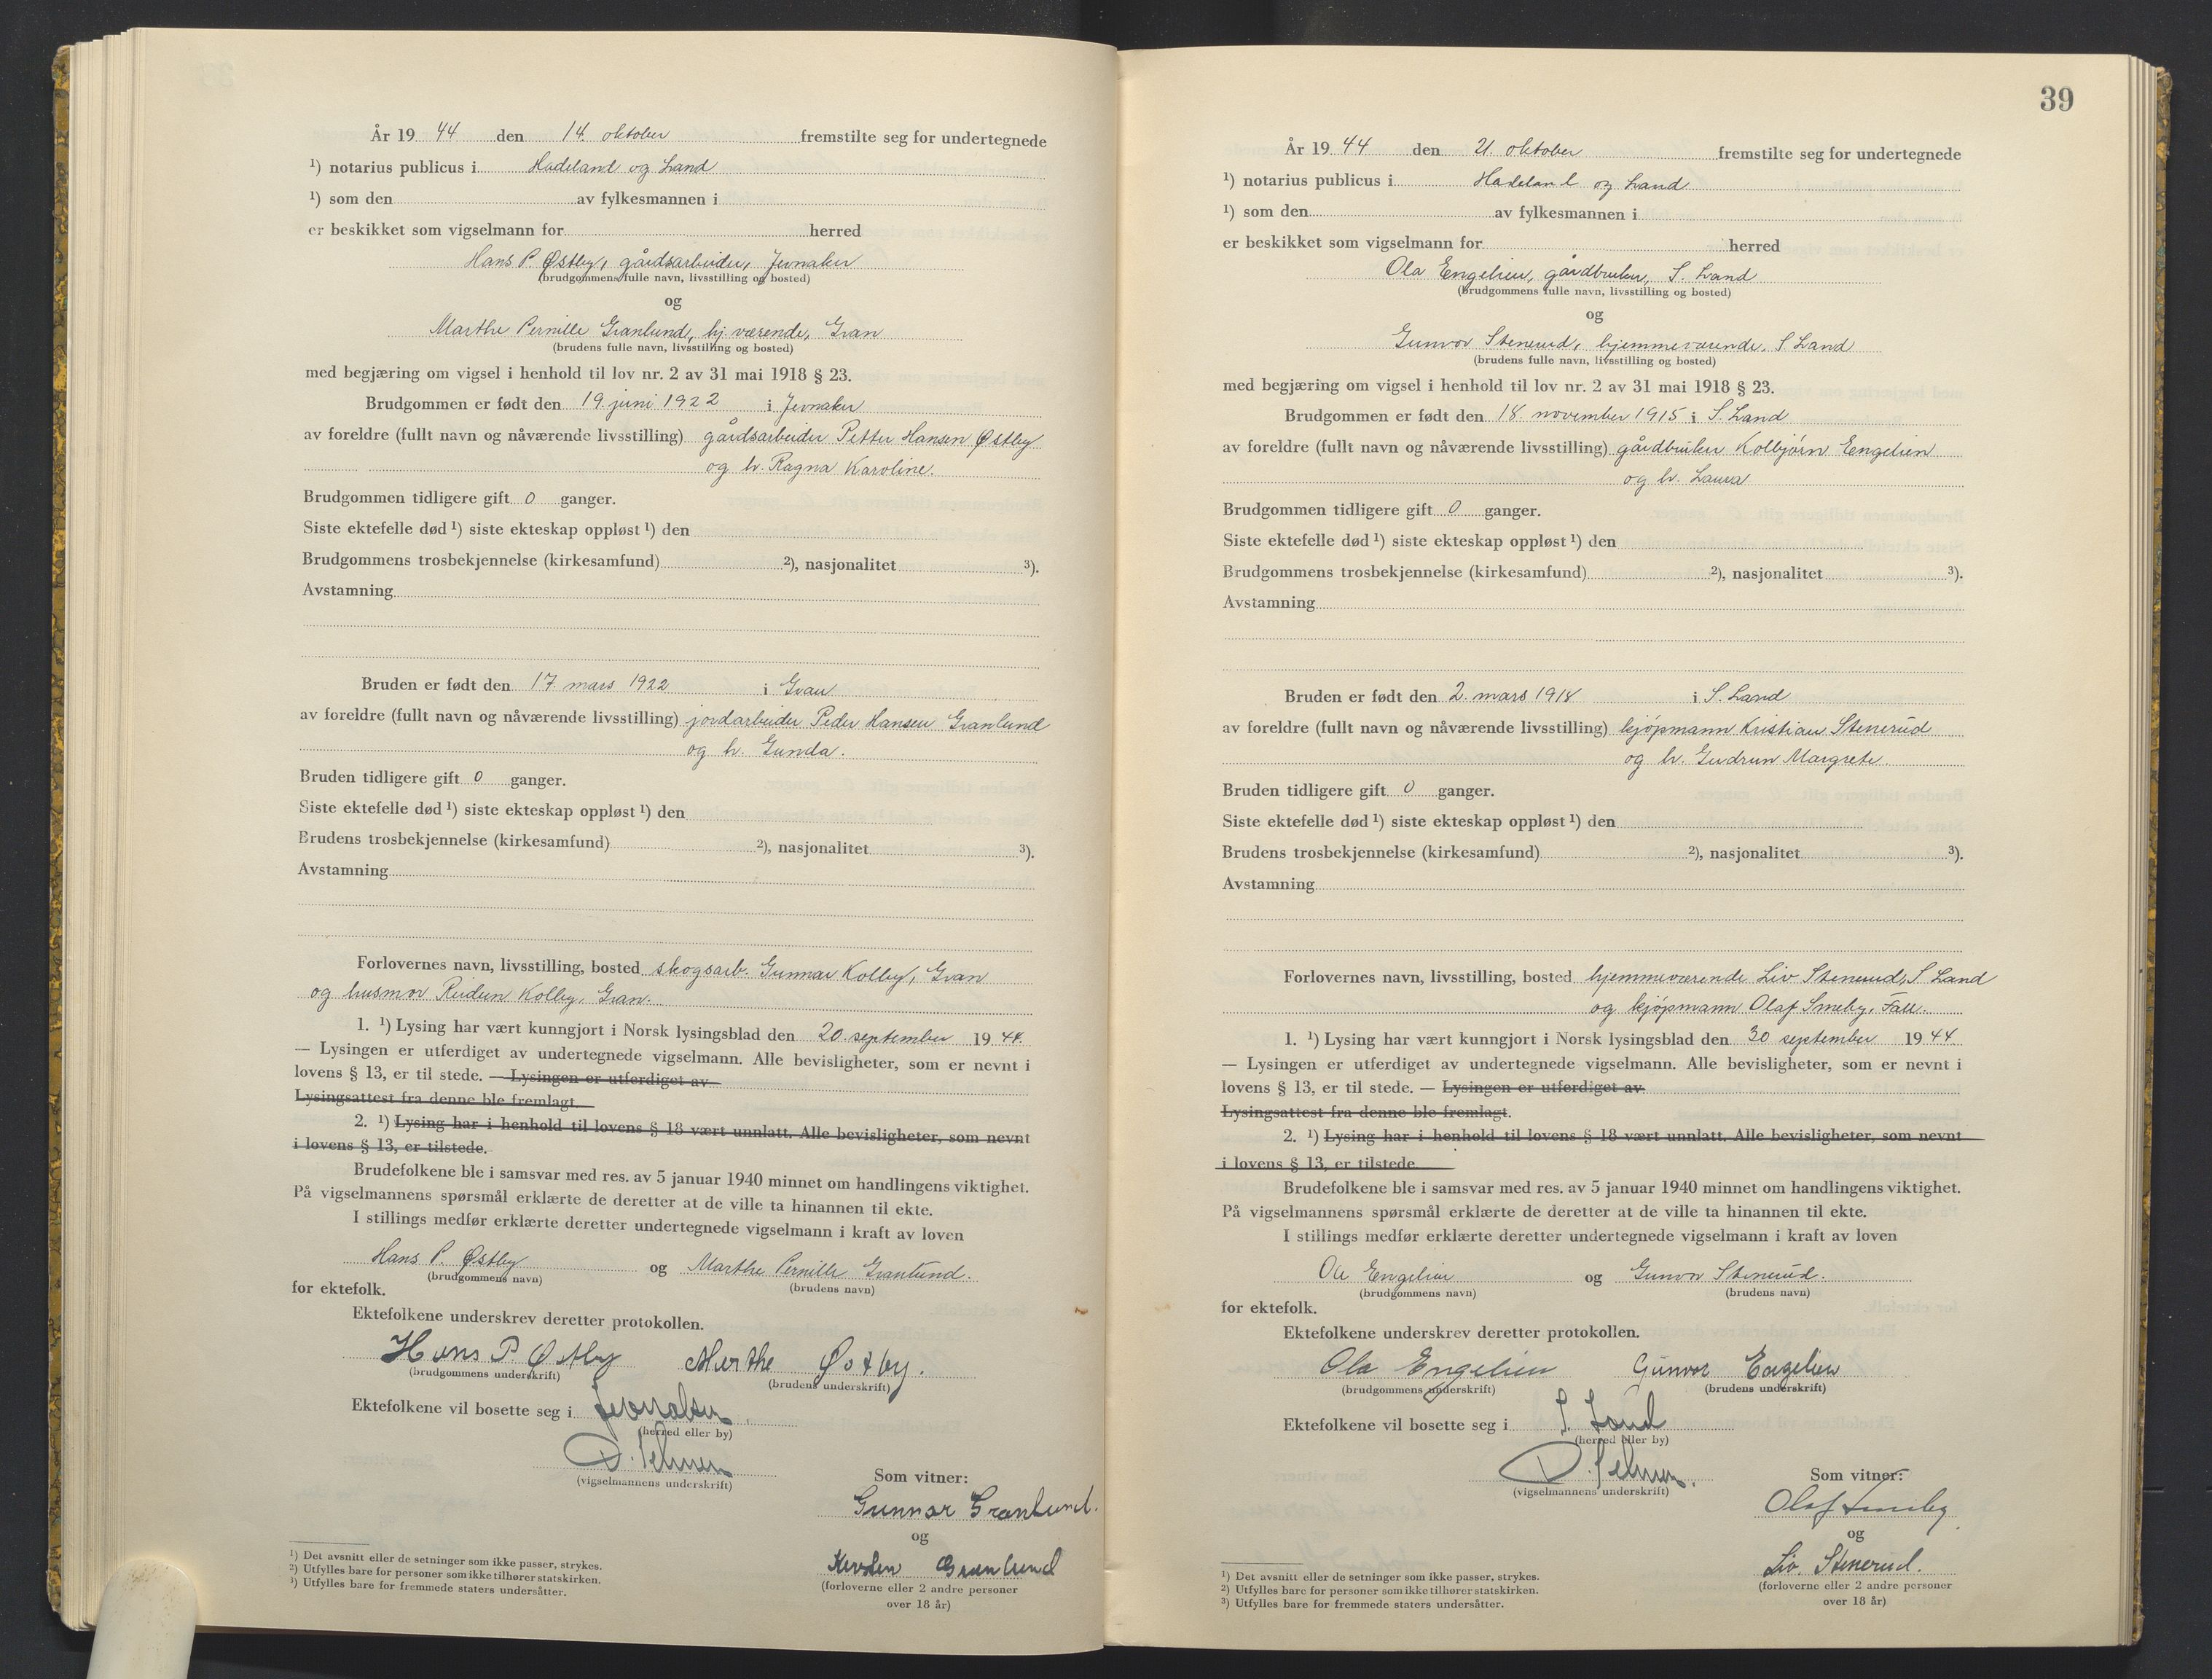 År 19 44 den 14. oktober fremstilte seg for undertegnede
¹) notarius publicus i Hadeland og Land
¹) som den av fylkesmannen i
er beskikket som vigselmann for herred
Hans P. Østby, gårdsarbeider, Jevnaker
(brudgommens fulle navn, livsstilling og bosted)
og
Marthe Pernille Granlund, hj. værende, Gran
(brudens fulle navn, livsstilling og bosted)
med begjæring om vigsel i henhold til lov nr. 2 av 31 mai 1918 § 23.
Brudgommen er født den 19. juni 1922 i Jevnaker
av foreldre (fullt navn og nåværende livsstilling) gårdsarbeider Petter Hansen Østby
og h. Ragna Karoline.
Brudgommen tidligere gift 0 ganger.
Siste ektefelle død ¹) siste ekteskap oppløst ¹) den
Brudgommens trosbekjennelse (kirkesamfund) ²), nasjonalitet ³).
Avstamning
Bruden er født den 17. mars 1922 i Gran
av foreldre (fullt navn og nåværende livsstilling) jordarbeider Peder Hansen Granlund
og h. Gunda.
Bruden tidligere gift 0 ganger.
Siste ektefelle død ¹) siste ekteskap oppløst ¹) den
Brudens trosbekjennelse (kirkesamfund) ²), nasjonalitet ³).
Avstamning
Forlovernes navn, livsstilling, bosted skogsarb. Gunnar Kolby, Gran
og husmor Reidun Kolby, Gran.
1. ¹) Lysing har vært kunngjort i Norsk lysingsblad den 20. september 19 44.
— Lysingen er utferdiget av undertegnede vigselmann. Alle bevisligheter, som er nevnt i
lovens § 13, er til stede. — Lysingen er utferdiget av
Lysingsattest fra denne ble fremlagt.
2. ¹) Lysing har i henhold til lovens § 18 vært unnlatt. Alle bevisligheter, som nevnt
i lovens § 13, er tilstede.
Brudefolkene ble i samsvar med res. av 5 januar 1940 minnet om handlingens viktighet.
På vigselmannens spørsmål erklærte de deretter at de ville ta hinannen til ekte.
I stillings medfør erklærte deretter undertegnede vigselmann i kraft av loven
Hans P. Østby og Marthe Pernille Granlund.
(brudgommens navn) (brudens navn)
for ektefolk.
Ektefolkene underskrev deretter protokollen.
Hans P. Østby Marthe Østby.
(brudgommens underskrift) (brudens underskrift)
Ektefolkene vil bosette seg i Jevnaker.
(herred eller by)
(vigselmannens underskrift)
Som vitner:
Gunnar Granlund.
og
Kirsten Granlund
(forloverne eller 2 andre personer
over 18 år)
¹) Det avsnitt eller de setninger som ikke passer, strykes.
²) Utfylles bare for personer som ikke tilhører statskirken.
³) Utfylles bare for fremmede staters undersåtter.
39
År 19 44 den 21. oktober fremstilte seg for undertegnede
¹) notarius publicus i Hadeland og Land
¹) som den av fylkesmannen i
er beskikket som vigselmann for herred
Ola Engelien, gårdbruker, S. Land
(brudgommens fulle navn, livsstilling og bosted)
og
Gunvor Stenerud, hjemmeværende, S Land
(brudens fulle navn, livsstilling og bosted)
med begjæring om vigsel i henhold til lov nr. 2 av 31 mai 1918 § 23.
Brudgommen er født den 18. november 1915 i S. Land
av foreldre (fullt navn og nåværende livsstilling) gårdbruker Kolbjørn Engelien
og h. Laura
Brudgommen tidligere gift 0 ganger.
Siste ektefelle død ¹) siste ekteskap oppløst ¹) den
Brudgommens trosbekjennelse (kirkesamfund) ²), nasjonalitet ³).
Avstamning
Bruden er født den 2. mars 1918 i S. Land
av foreldre (fullt navn og nåværende livsstilling) kjøpmann Kristian Stenerud
og h. Gudrun Margrete.
Bruden tidligere gift 0 ganger.
Siste ektefelle død ¹) siste ekteskap oppløst ¹) den
Brudens trosbekjennelse (kirkesamfund) ²), nasjonalitet ³).
Avstamning
Forlovernes navn, livsstilling, bosted hjemmeværende Liv Stenerud, S Land
og kjøpmann Olaf Smeby, Fall.
1. ¹) Lysing har vært kunngjort i Norsk lysingsblad den 30 september 19 44.
— Lysingen er utferdiget av undertegnede vigselmann. Alle bevisligheter, som er nevnt i
lovens § 13, er til stede. — Lysingen er utferdiget av
Lysingsattest fra denne ble fremlagt.
2. ¹) Lysing har i henhold til lovens § 18 vært unnlatt. Alle bevisligheter, som nevnt
i lovens § 13, er tilstede.
Brudefolkene ble i samsvar med res. av 5 januar 1940 minnet om handlingens viktighet.
På vigselmannens spørsmål erklærte de deretter at de ville ta hinannen til ekte.
I stillings medfør erklærte deretter undertegnede vigselmann i kraft av loven
Ola Engelien og Gunvor Stenerud.
(brudgommens navn) (brudens navn)
for ektefolk.
Ektefolkene underskrev deretter protokollen.
Ola Engelien Gunvor Engelien
(brudgommens underskrift) (brudens underskrift)
Ektefolkene vil bosette seg i S. Land
(herred eller by)
(vigselmannens underskrift)
Som vitner:
Olaf Smeby
og
Liv. Stenerud.
(forloverne eller 2 andre personer
over 18 år)
¹) Det avsnitt eller de setninger som ikke passer, strykes.
²) Utfylles bare for personer som ikke tilhører statskirken.
³) Utfylles bare for fremmede staters undersåtter.